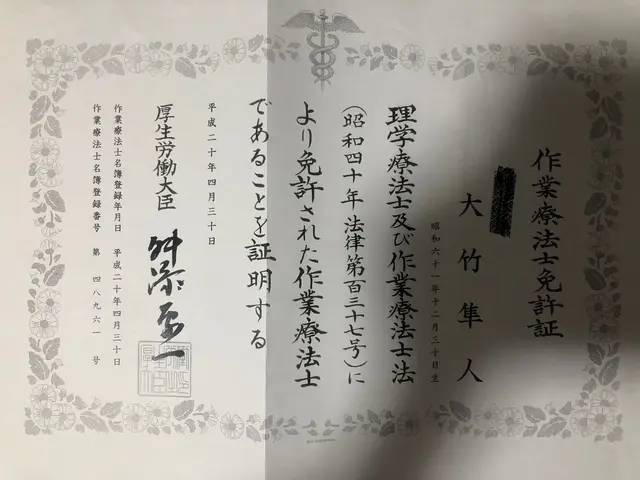 作業療法士免許証
大竹隼人
昭和六十一年十二月三十日生
理学療法士及び作業療法士法
(昭和四十年法律第百三十七号)に
より免許された作業療法士
であることを証明する
平成二十年四月三十日
厚生労働大臣 舛添要一
作業療法士名簿登録年月日 平成二十年四月三十日
作業療法士名簿登録番号 第四八九六一号